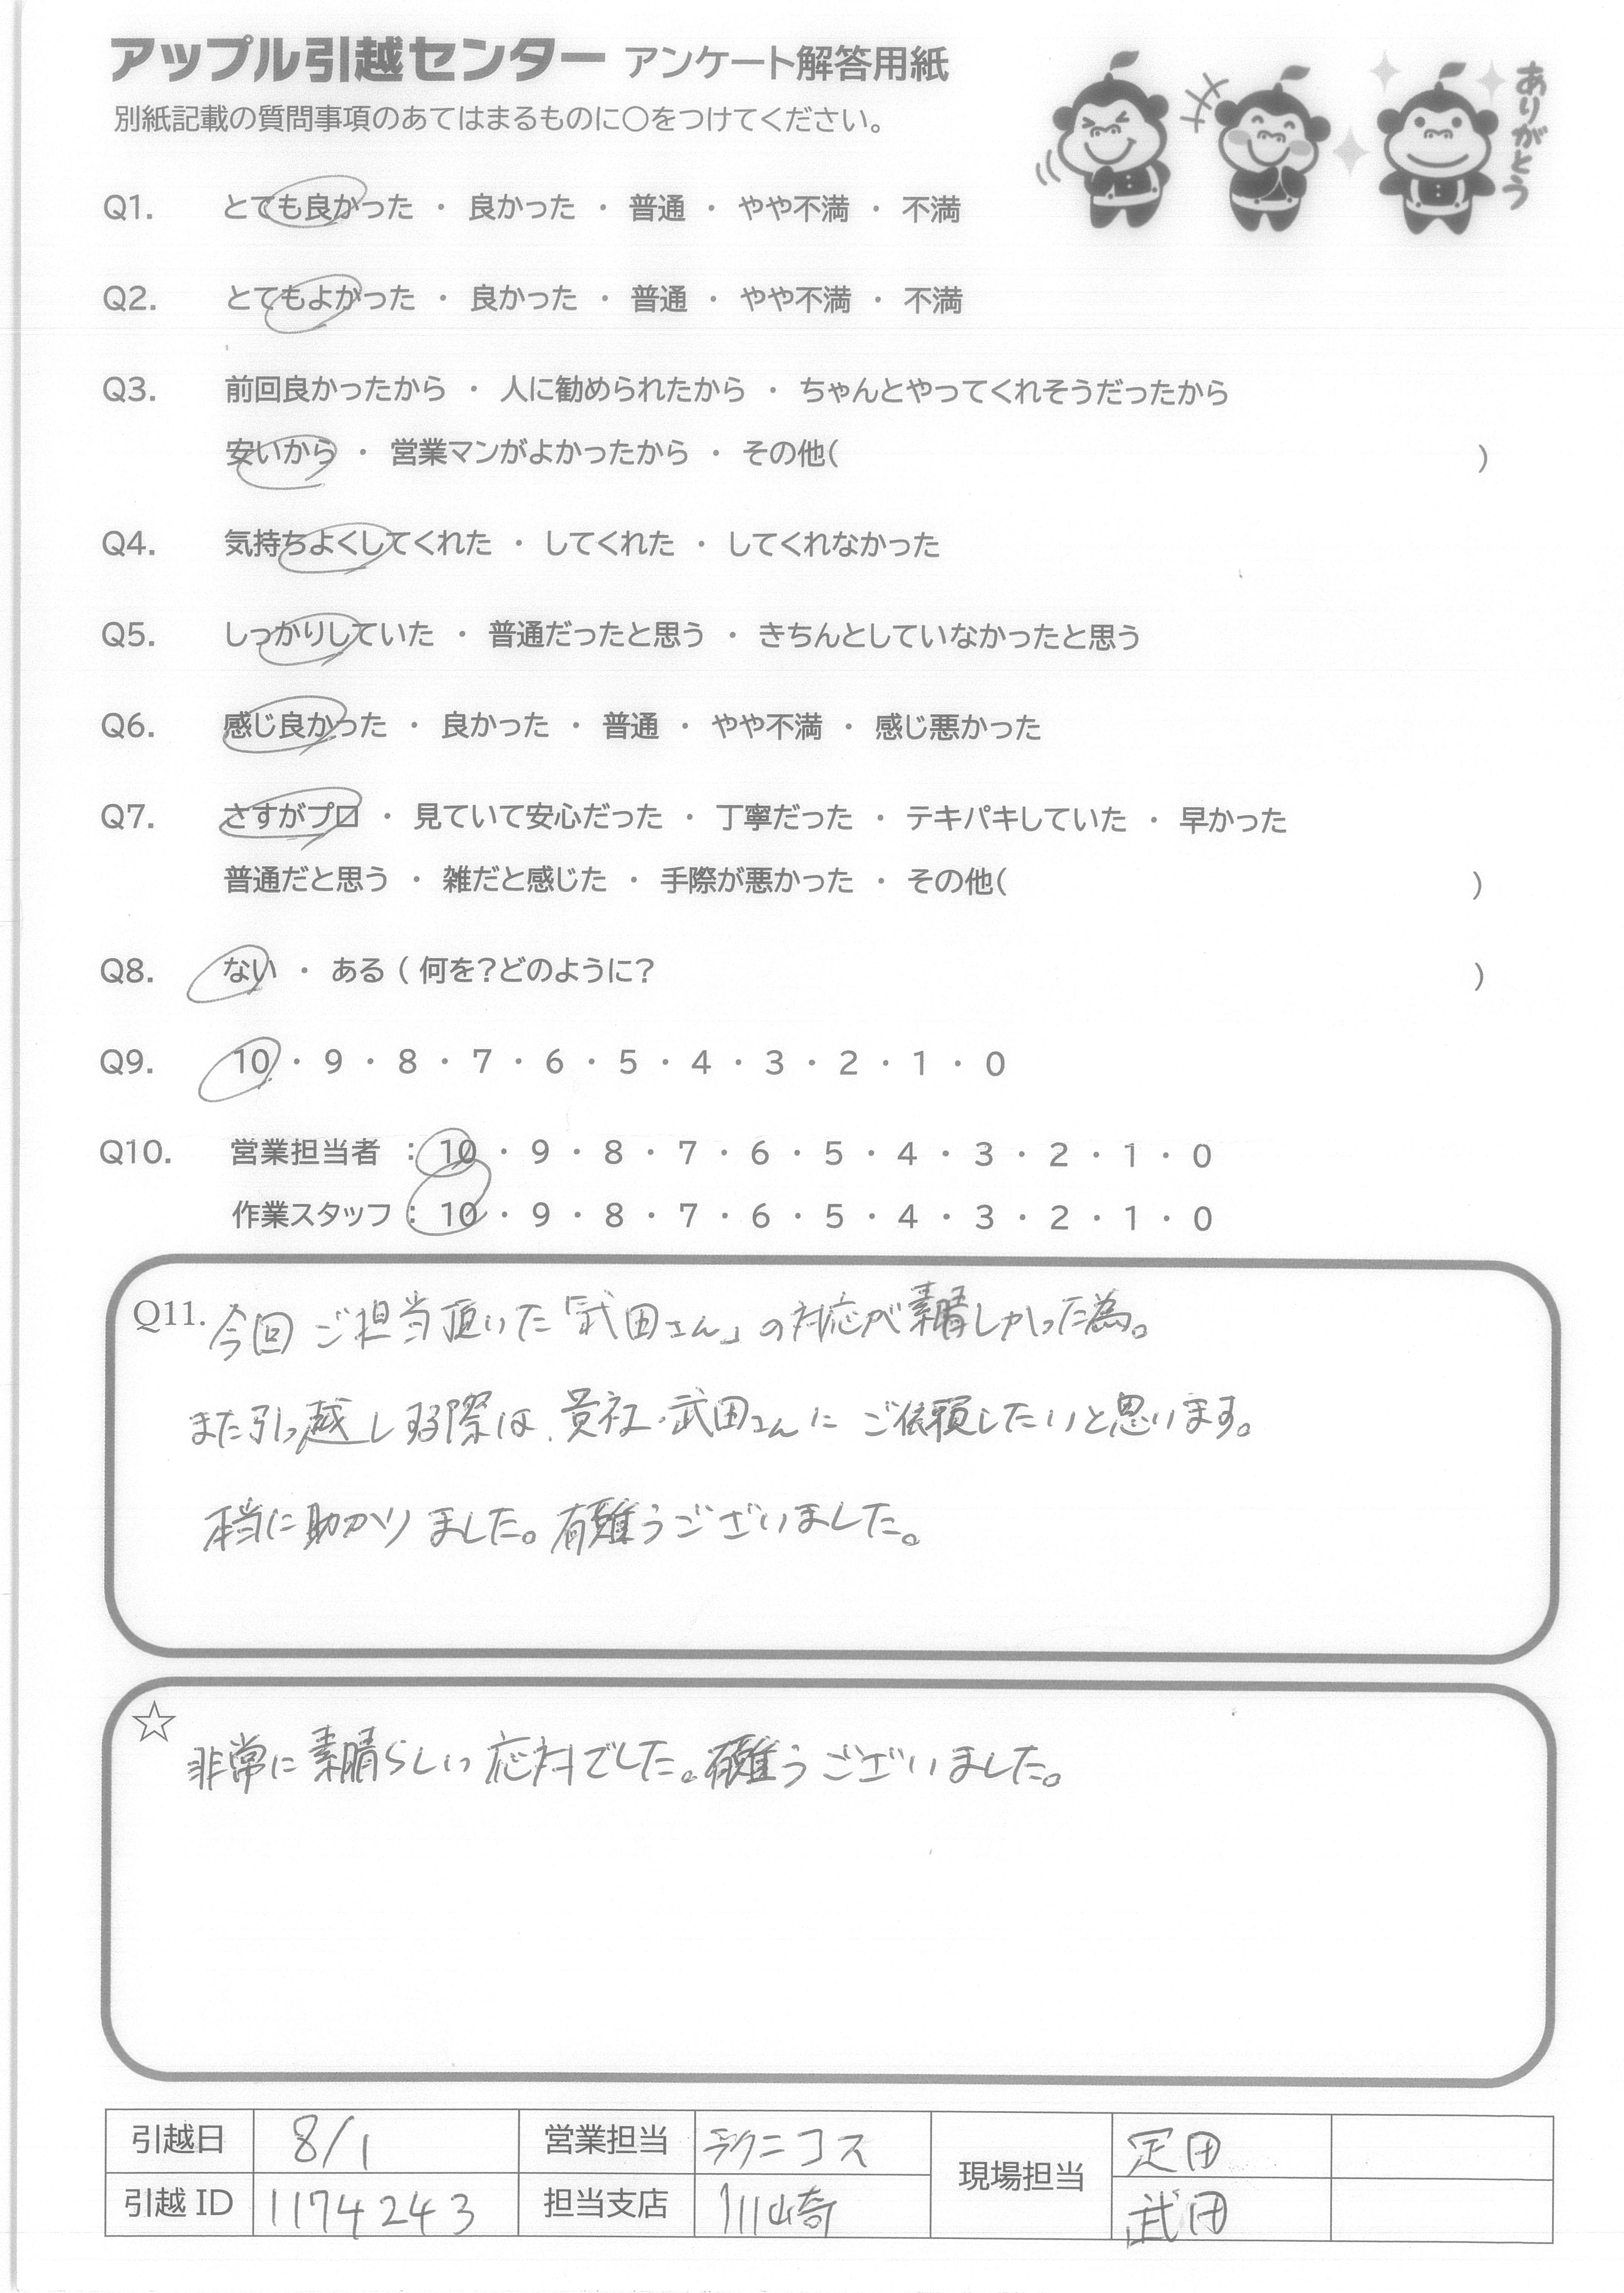 アップル引越センター アンケート解答用紙
ありがとう
別紙記載の質問事項のあてはまるものに○をつけてください。
Q1. とても良かった ・ 良かった ・ 普通 ・ やや不満 ・ 不満
Q2. とてもよかった ・ 良かった ・ 普通 ・ やや不満 ・ 不満
Q3. 前回良かったから ・ 人に勧められたから ・ ちゃんとやってくれそうだったから
安いから ・ 営業マンがよかったから ・ その他( )
Q4. 気持ちよくしてくれた ・ してくれた ・ してくれなかった
Q5. しっかりしていた ・ 普通だったと思う ・ きちんとしていなかったと思う
Q6. 感じ良かった ・ 良かった ・ 普通 ・ やや不満 ・ 感じ悪かった
Q7. さすがプロ ・ 見ていて安心だった ・ 丁寧だった ・ テキパキしていた ・ 早かった
普通だと思う ・ 雑だと感じた ・ 手際が悪かった ・ その他( )
Q8. ない ・ ある ( 何を?どのように? )
Q9. 10 ・ 9 ・ 8 ・ 7 ・ 6 ・ 5 ・ 4 ・ 3 ・ 2 ・ 1 ・ 0
Q10. 営業担当者 : 10 ・ 9 ・ 8 ・ 7 ・ 6 ・ 5 ・ 4 ・ 3 ・ 2 ・ 1 ・ 0
作業スタッフ : 10 ・ 9 ・ 8 ・ 7 ・ 6 ・ 5 ・ 4 ・ 3 ・ 2 ・ 1 ・ 0
Q11. 今回 ご担当頂いた「武田さん」の対応が素晴しかった為。
また引っ越しする際は、貴社・武田さんに ご依頼したいと思います。
本当に助かりました。有難うございました。
☆ 非常に素晴らしい応対でした。有難うございました。
引越日 8/1 営業担当 テクニコス 現場担当 定田
引越 ID 1174243 担当支店 川崎 武田